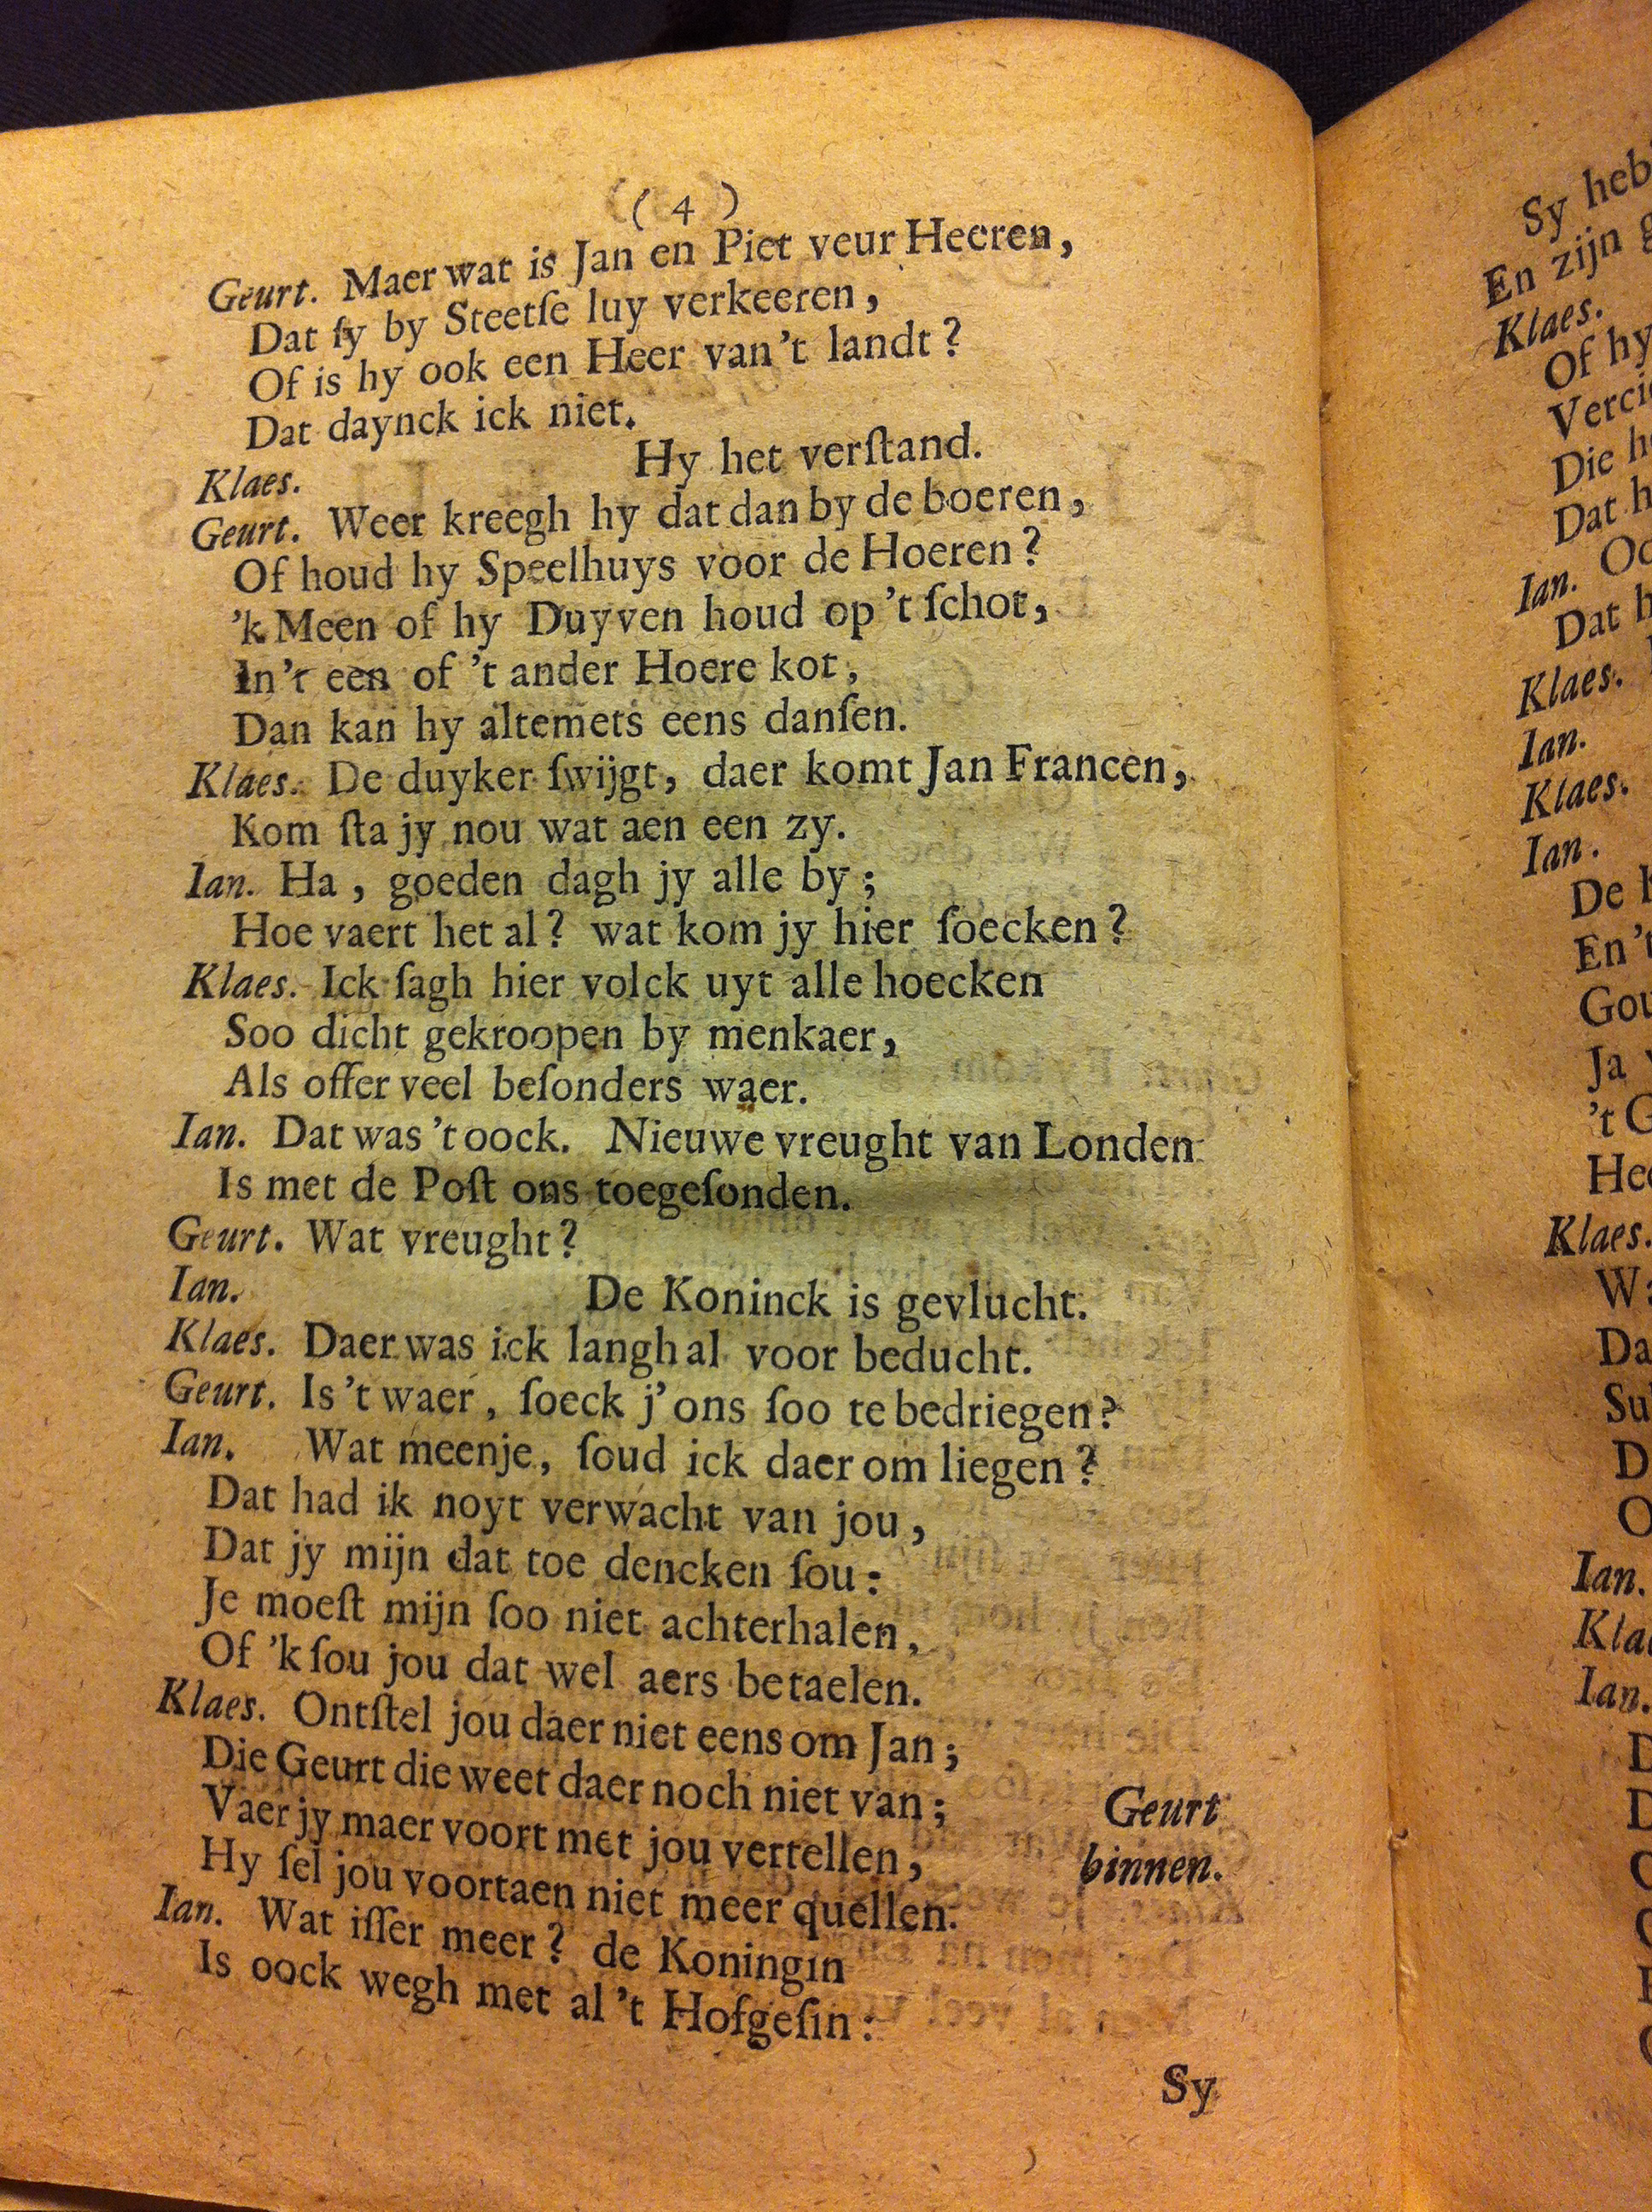 ( 4 )
Geurt. Maer wat is Jan en Piet veur Heeren,
Dat ſy by Steetſe luy verkeeren,
Of is hy ook een Heer van't landt?
Dat daynck ick niet.
Klaes. Hy het verſtand.
Geurt. Weer kreegh hy dat dan by de boeren,
Of houd hy Speelhuys voor de Hoeren?
'k Meen of hy Duyven houd op 't ſchot,
In't een of 't ander Hoere kot,
Dan kan hy altemets eens danſen.
Klaes. De duyker ſwijgt, daer komt Jan Francen,
Kom ſta jy nou wat aen een zy.
Ian. Ha, goeden dagh jy alle by;
Hoe vaert het al? wat kom jy hier ſoecken?
Klaes. Ick ſagh hier volck uyt alle hoecken
Soo dicht gekroopen by menkaer,
Als offer veel beſonders waer.
Ian. Dat was 't oock. Nieuwe vreught van Londen
Is met de Poſt ons toegeſonden.
Geurt. Wat vreught?
Ian. De Koninck is gevlucht.
Klaes. Daer was ick langh al voor beducht.
Geurt. Is 't waer, ſoeck j' ons ſoo te bedriegen?
Ian. Wat meenje, ſoud ick daer om liegen?
Dat had ik noyt verwacht van jou,
Dat jy mijn dat toe dencken ſou:
Je moeſt mijn ſoo niet achterhalen,
Of 'k ſou jou dat wel aers betaelen.
Klaes. Ontſtel jou daer niet eens om Jan;
Die Geurt die weet daer noch niet van;
Vaer jy maer voort met jou vertellen,
Hy ſel jou voortaen niet meer quellen.
Geurt
binnen.
Ian. Wat iſſer meer? de Koningin
Is oock wegh met al 't Hofgeſin:
Sy
Sy
En zijn
Klaes.
Of hy
Die
Dat
Ian.
Dat
Klaes.
Ian.
Klaes.
Ian.
De
En 't
Ja
't
Klaes.
Ian.
Ian.